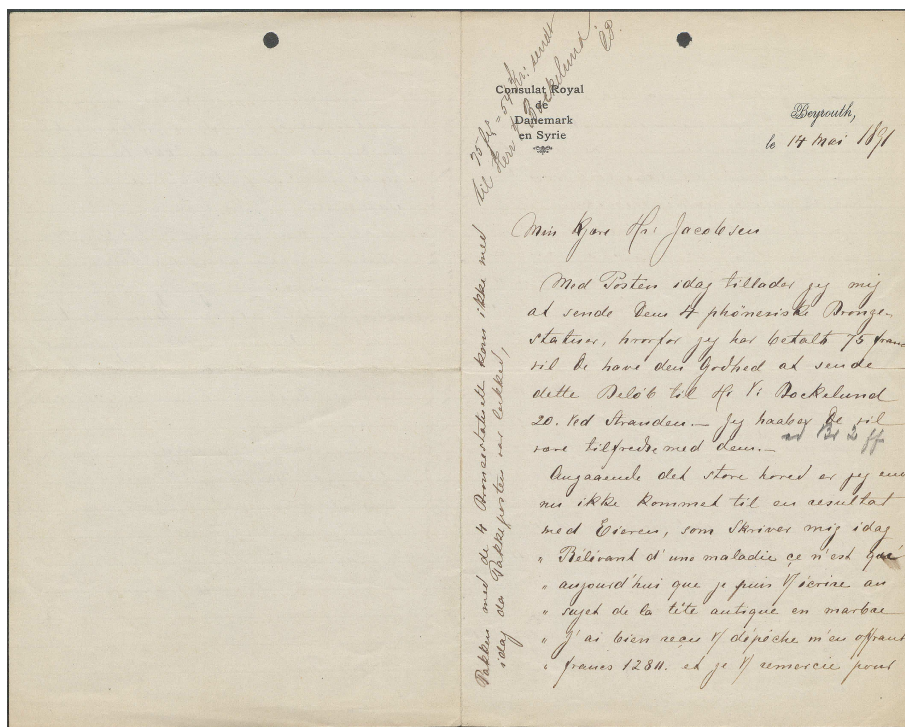 75 frs = 54 Kr: sendt
til Herr V Bockelund.
Consulat Royal
de
Danemark
en Syrie
Beyrouth,
le 14 Mai 1891
Min Kjære Hr: Jacobsen
Med Posten idag tillader jeg mig
at sende Dem 4 phönesiske Bronge-
statuer, hvorfor jeg har betalt 75 franc
vil De have den Godhed at sende
dette Belöb til Hr V: Bockelund
20. Ved Stranden.— Jeg haaber De vil
være tilfredse med dem.—
Angaaende det store hoved er jeg enn
nu ikke kommet til en resultat
med Eieren, som skriver mig idag
" Rélévant d'une maladie ce n'est que
" aujourd'hui que je puis V/ écrire au
" sujet de la tête antique en marbre
" J'ai bien reçu V/ dépêche m'en offrant
" francs 1280. et je V/ remercie pour
Pakken med de 4 Broncestatuett kom ikke med
idag da Pakkeposten var lukked,